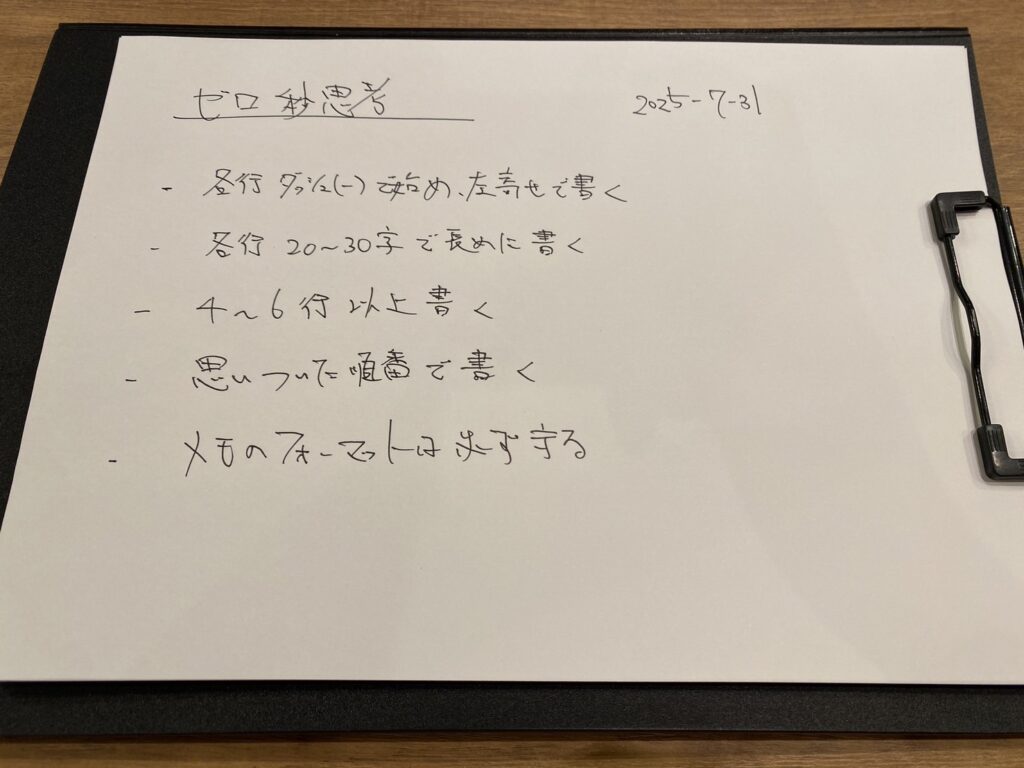 ゼロ秒思考 2025-7-31
- 各行ダッシュ(-)で始め、左寄せで書く
- 各行20〜30字で長めに書く
- 4〜6行以上書く
- 思いついた順番で書く
- メモのフォーマットは必ず守る